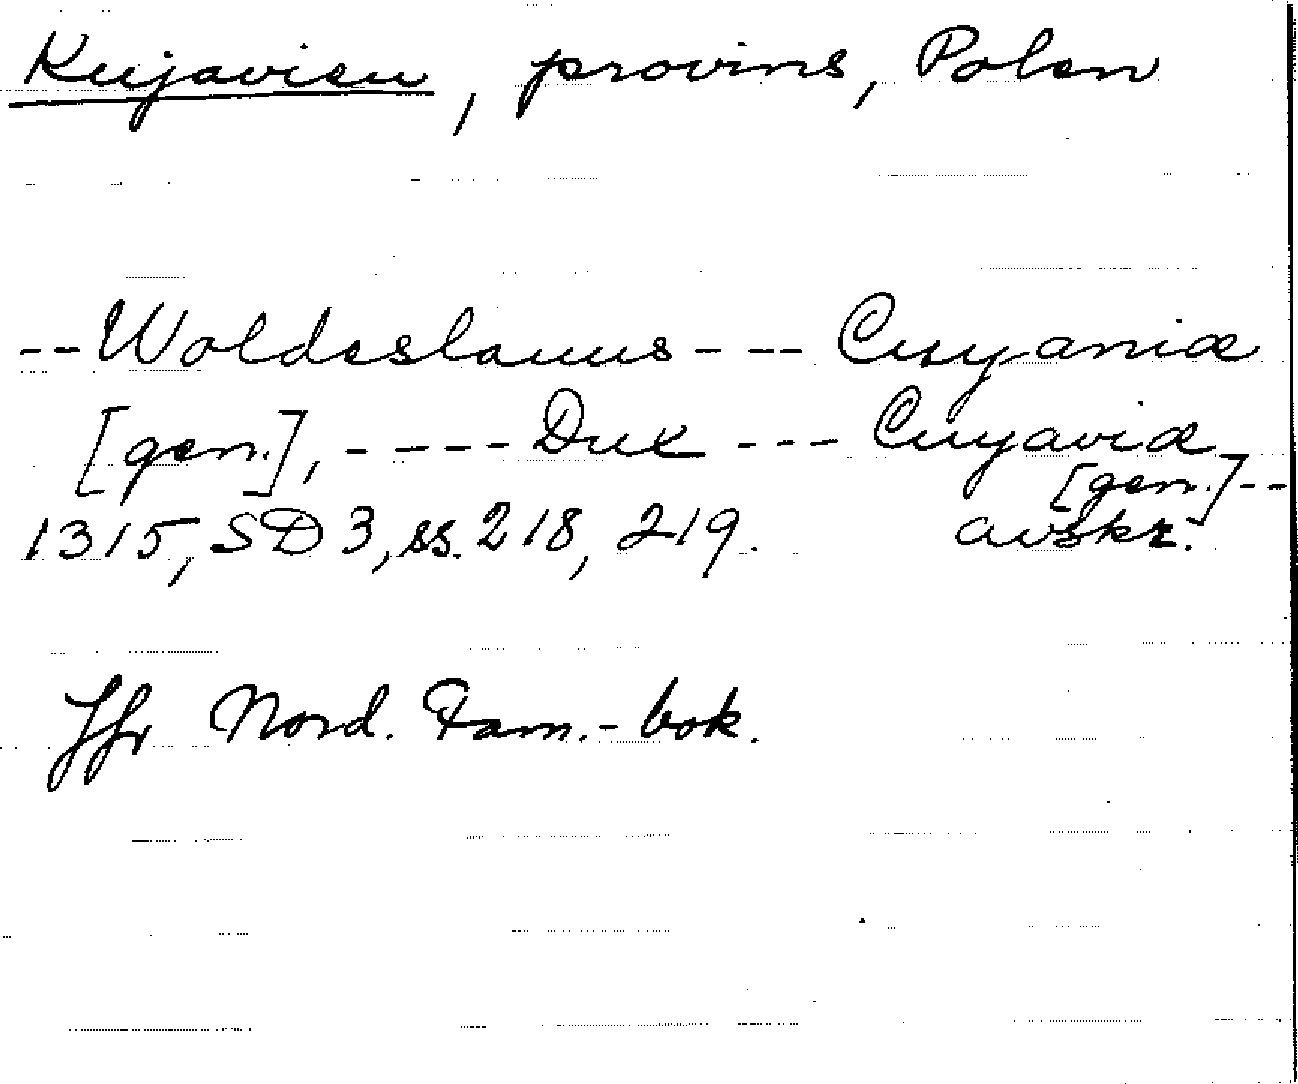 Kujavien, provins, Polen
--Woldeslauus--- Cuyaniæ
[gen.], ---- Dux --- Cuyaviæ
[gen.]--
1315, SD 3, ss. 218, 219. avskr.
Jfr Nord. Fam.-bok.